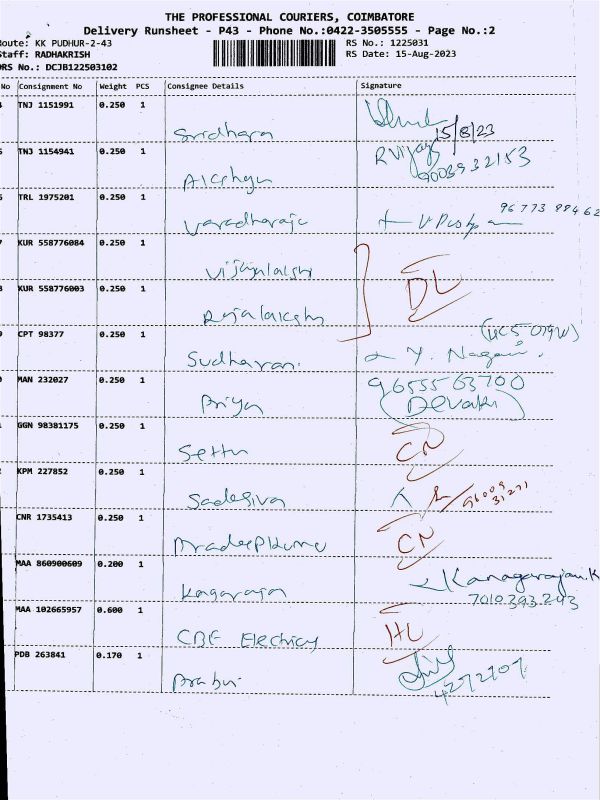 THE PROFESSIONAL COURIERS, COIMBATORE
Delivery Runsheet - P43 - Phone No.:0422-3505555 - Page No.:2
Route: KK PUDHUR-2-43 RS No.: 1225031
Staff: RADHAKRISH RS Date: 15-Aug-2023
DRS No.: DCJB122503102
No Consignment No Weight PCS Consignee Details Signature
TNJ 1151991 0.250 1
Sridhara 15/8/23
TNJ 1154941 0.250 1 R Vijay
9003932153
TRL 1975201 0.250 1
Varadharaju 96773 99462
KUR 558776084 0.250 1
Vijayalakshi
KUR 558776003 0.250 1 DL
Rajalakshi
CPT 98377 0.250 1
Sudharan. Y. Nagani.
MAN 232027 0.250 1 9655563700
Priya (Devaki)
GGN 98381175 0.250 1 CN
Settu
KPM 227852 0.250 1
Sadasiva 96009 31271
CNR 1735413 0.250 1 CN
Pradeepkumu
MAA 860900609 0.200 1 Kanagarajan.K
Kagaraja 7010393293
MAA 102665957 0.600 1 HL
CBE Electricy
PDB 263841 0.170 1
Prabu 4272707